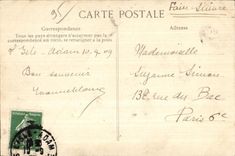 95
Faire-Suivre
CARTE POSTALE
Correspondance
Tous les pays étrangers n'acceptent pas la
correspondance au recto, se renseigner à la poste
L'Isle-Adam 10.4.09
Mademoiselle
Bon souvenir
Suzanne Simon
13c rue du Bac
Paris 6e
ADAM